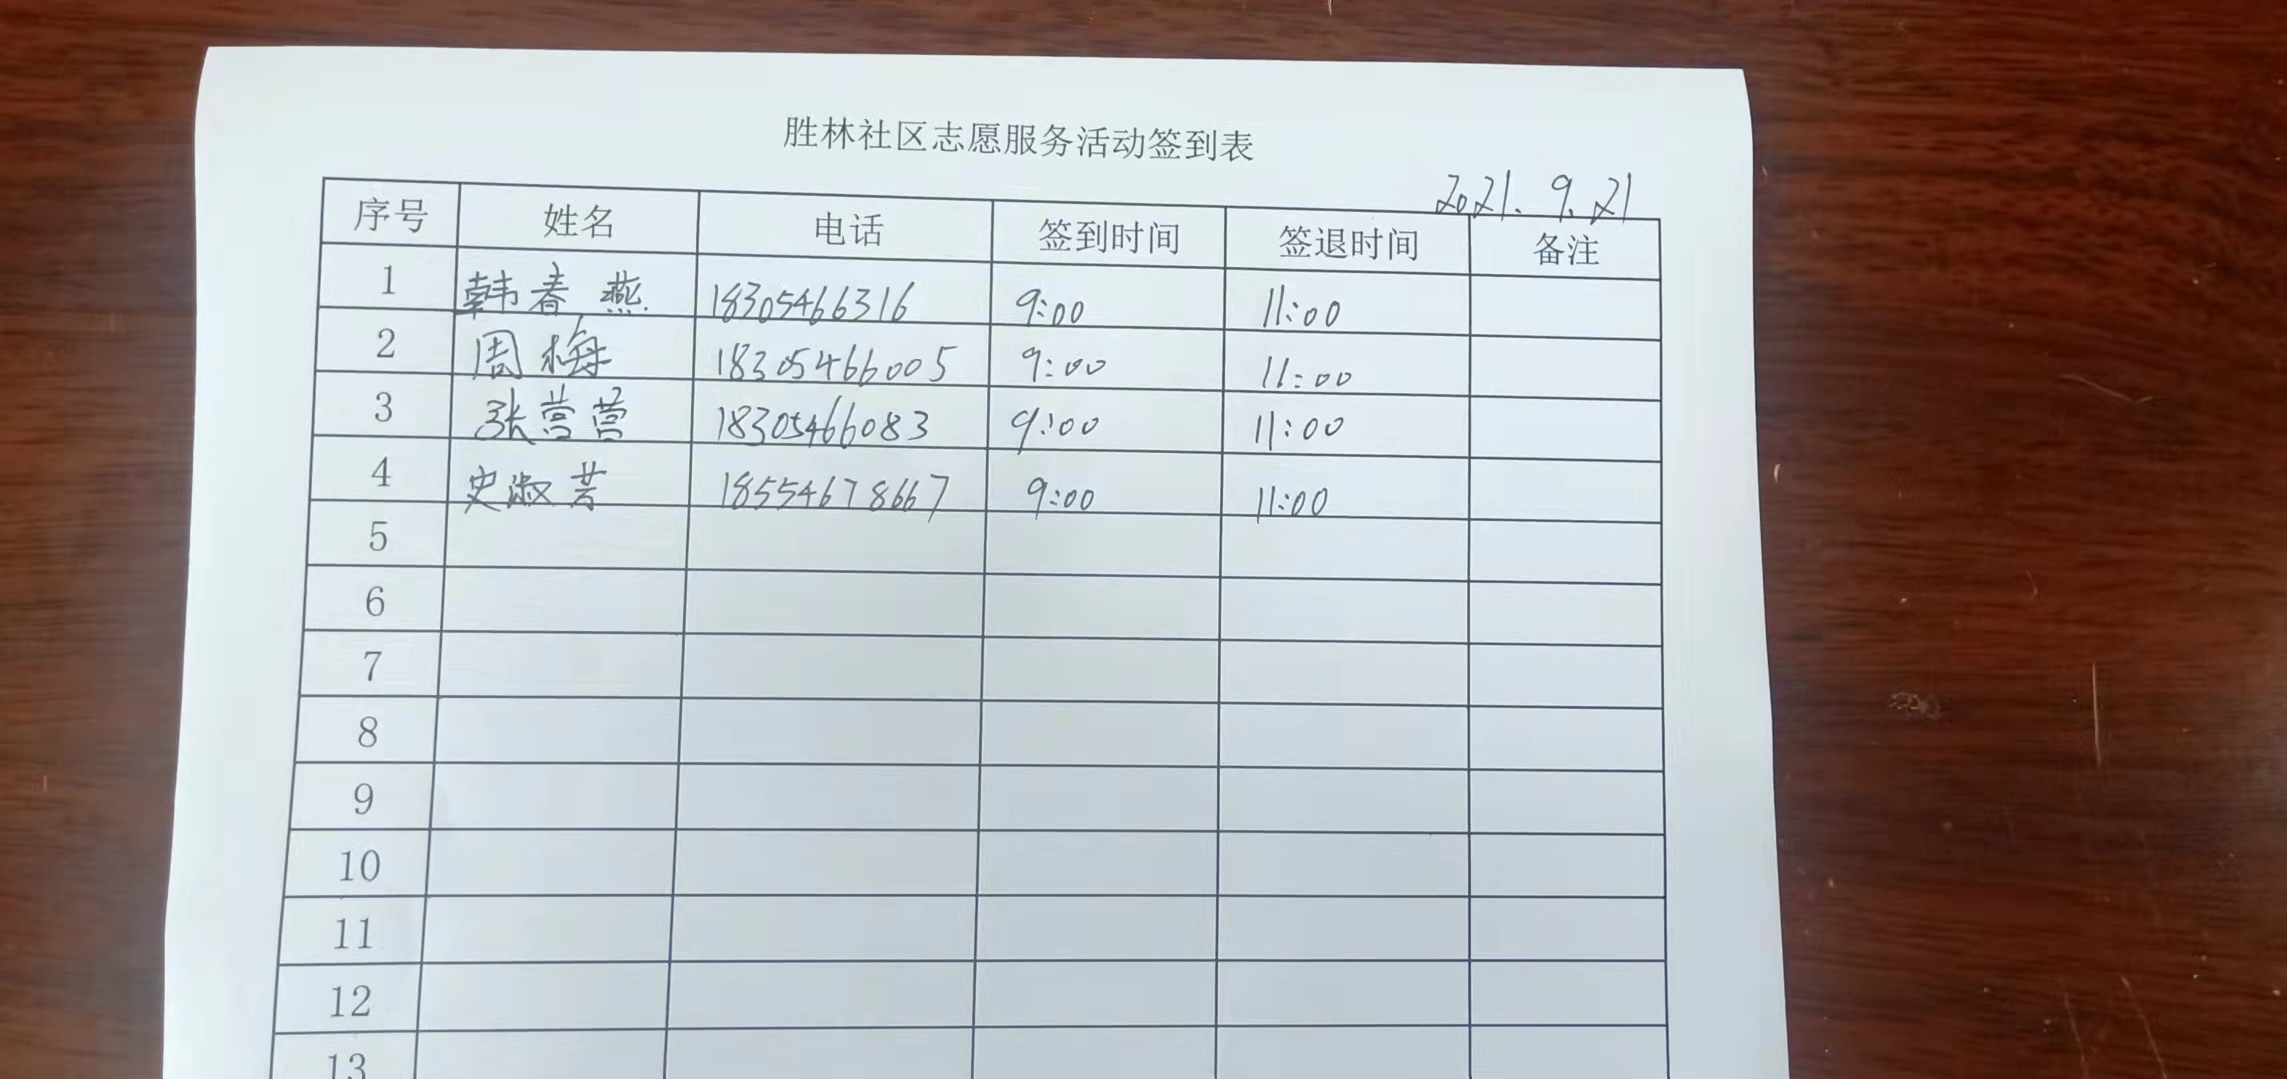 胜林社区志愿服务活动签到表
2021.9.21
序号 姓名 电话 签到时间 签退时间 备注
1 韩春燕 18305466316 9:00 11:00
2 周梅 18305466005 9:00 11:00
3 张营营 18305466083 9:00 11:00
4 史淑芳 18554678667 9:00 11:00
5
6
7
8
9
10
11
12
13